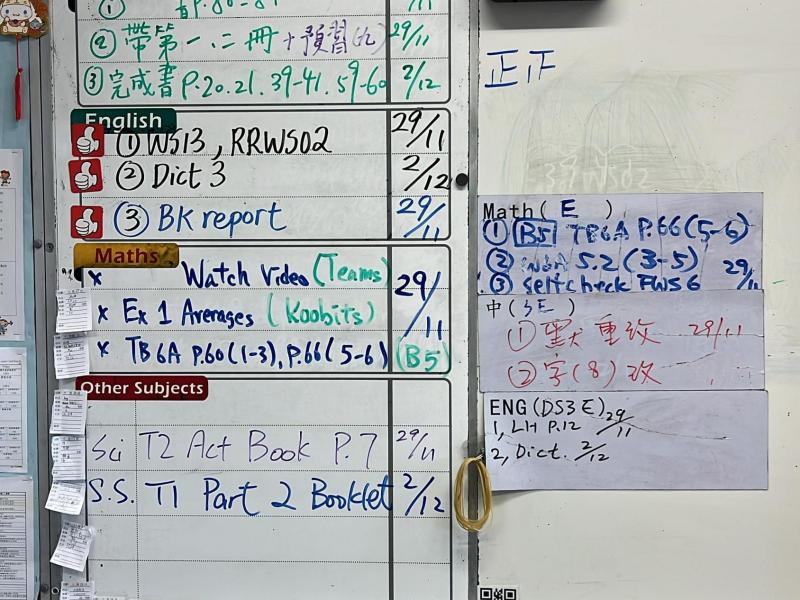 ① 書P.80-81
② 帶第一、二冊+預習(九) 29/11
③ 完成書 P.20.21.39-41.59-60 2/12
English
① WS13, RRWS02 29/11
② Dict 3 2/12
③ BK report 29/11
Maths
x Watch Video (Teams) 29/11
x Ex 1 Averages (Koobits)
x TB6A P.60(1-3), P.66(5-6) (B5)
Other Subjects
Sci T2 Act Book P.7 29/11
S.S. T1 Part 2 Booklet 2/12
正正
Math( E )
① B5 TB6A P.66(5-6)
② 5.2 (3-5) 29/11
③ selfcheck FWS 6
中(3E)
① 默 重改 29/11
② 字(8) 改
ENG (DS3 E)
1, LH P.12 29/11
2, Dict. 2/12